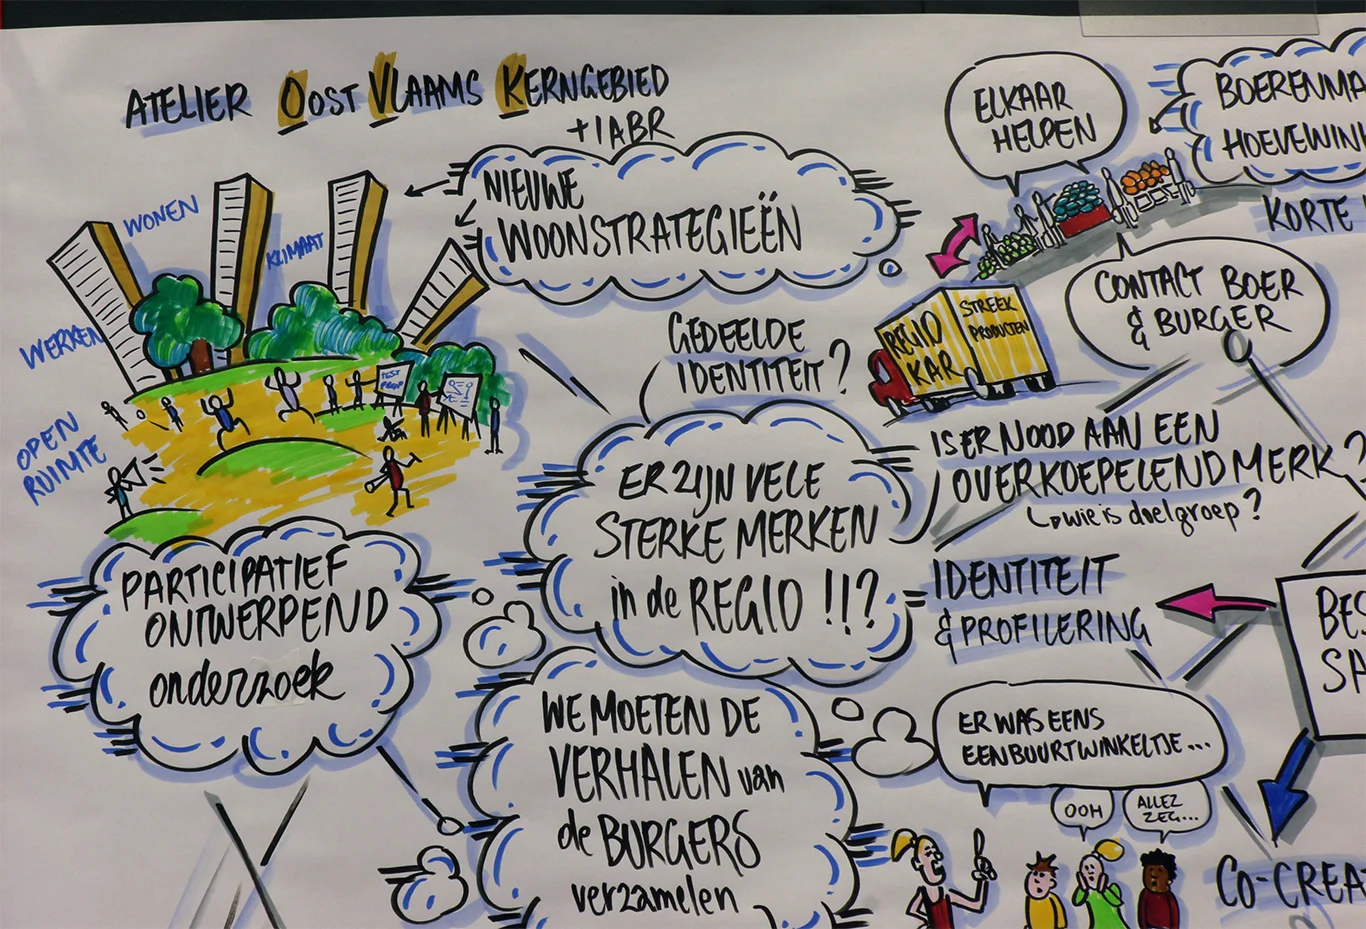 ATELIER OOST VLAAMS KERNGEBIED
+ IABR
NIEUWE
WOONSTRATEGIEËN
WONEN
KLIMAAT
WERKEN
OPEN
RUIMTE
TEST
PARTICIPATIEF
ONTWERPEND
onderzoek
GEDEELDE
IDENTITEIT?
ER ZIJN VELE
STERKE MERKEN
in de REGIO !!?
WE MOETEN DE
VERHALEN van
de BURGERS
verzamelen
ELKAAR
HELPEN
BOERENMA
HOEVEWIN
KORTE
CONTACT BOER
& BURGER
REGIO
KAR
STREEK
PRODUCTEN
IS ER NOOD AAN EEN
OVERKOEPELEND MERK?
↳ wie is doelgroep?
IDENTITEIT
& PROFILERING
BES
SA
ER WAS EENS
EEN BUURTWINKELTJE...
OOH
ALLEZ
ZEG...
CO-CREA